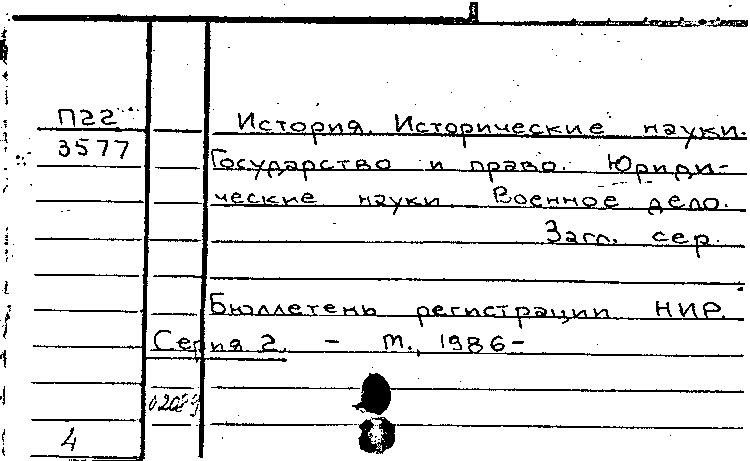 П22
3577
История. Исторические науки.
Государство и право. Юриди-
ческие науки. Военное дело.
Загл. сер.
Бюллетень регистрации НИР.
Серия 2. - М., 1986-
02089
4